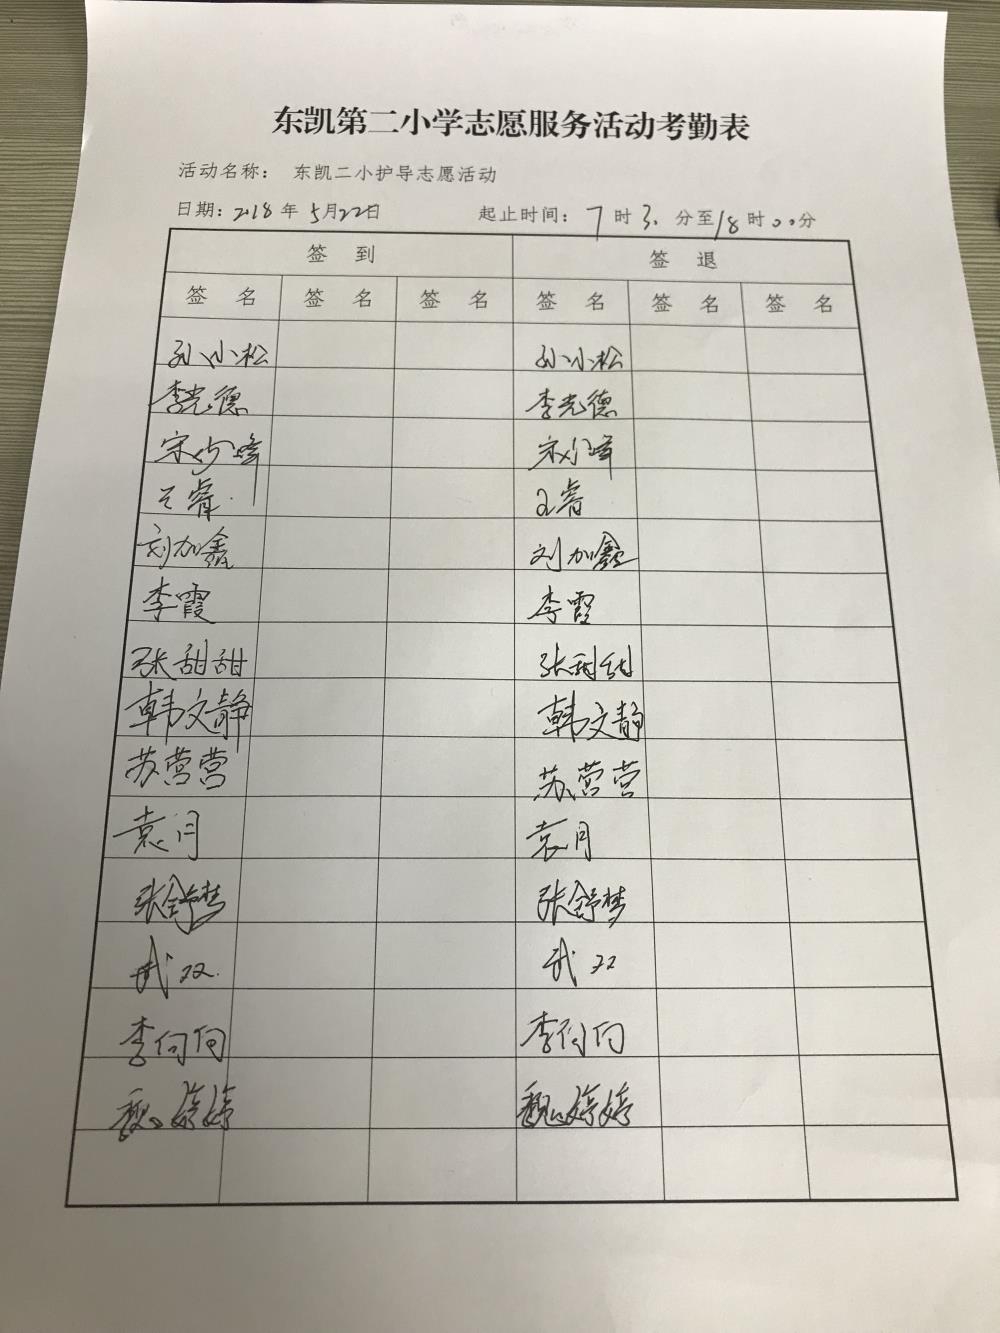 东凯第二小学志愿服务活动考勤表
活动名称： 东凯二小护导志愿活动
日期：2018年5月22日 起止时间：7时30分至18时00分
签 到 签 退
签 名 签 名 签 名 签 名 签 名 签 名
孙小松 孙小松
李光德 李光德
宋少峰 宋少峰
王睿 王睿
刘加鑫 刘加鑫
李霞 李霞
张甜甜 张甜甜
韩文静 韩文静
苏营营 苏营营
袁月 袁月
张舒梦 张舒梦
武双 武双
李向向 李向向
魏婷婷 魏婷婷